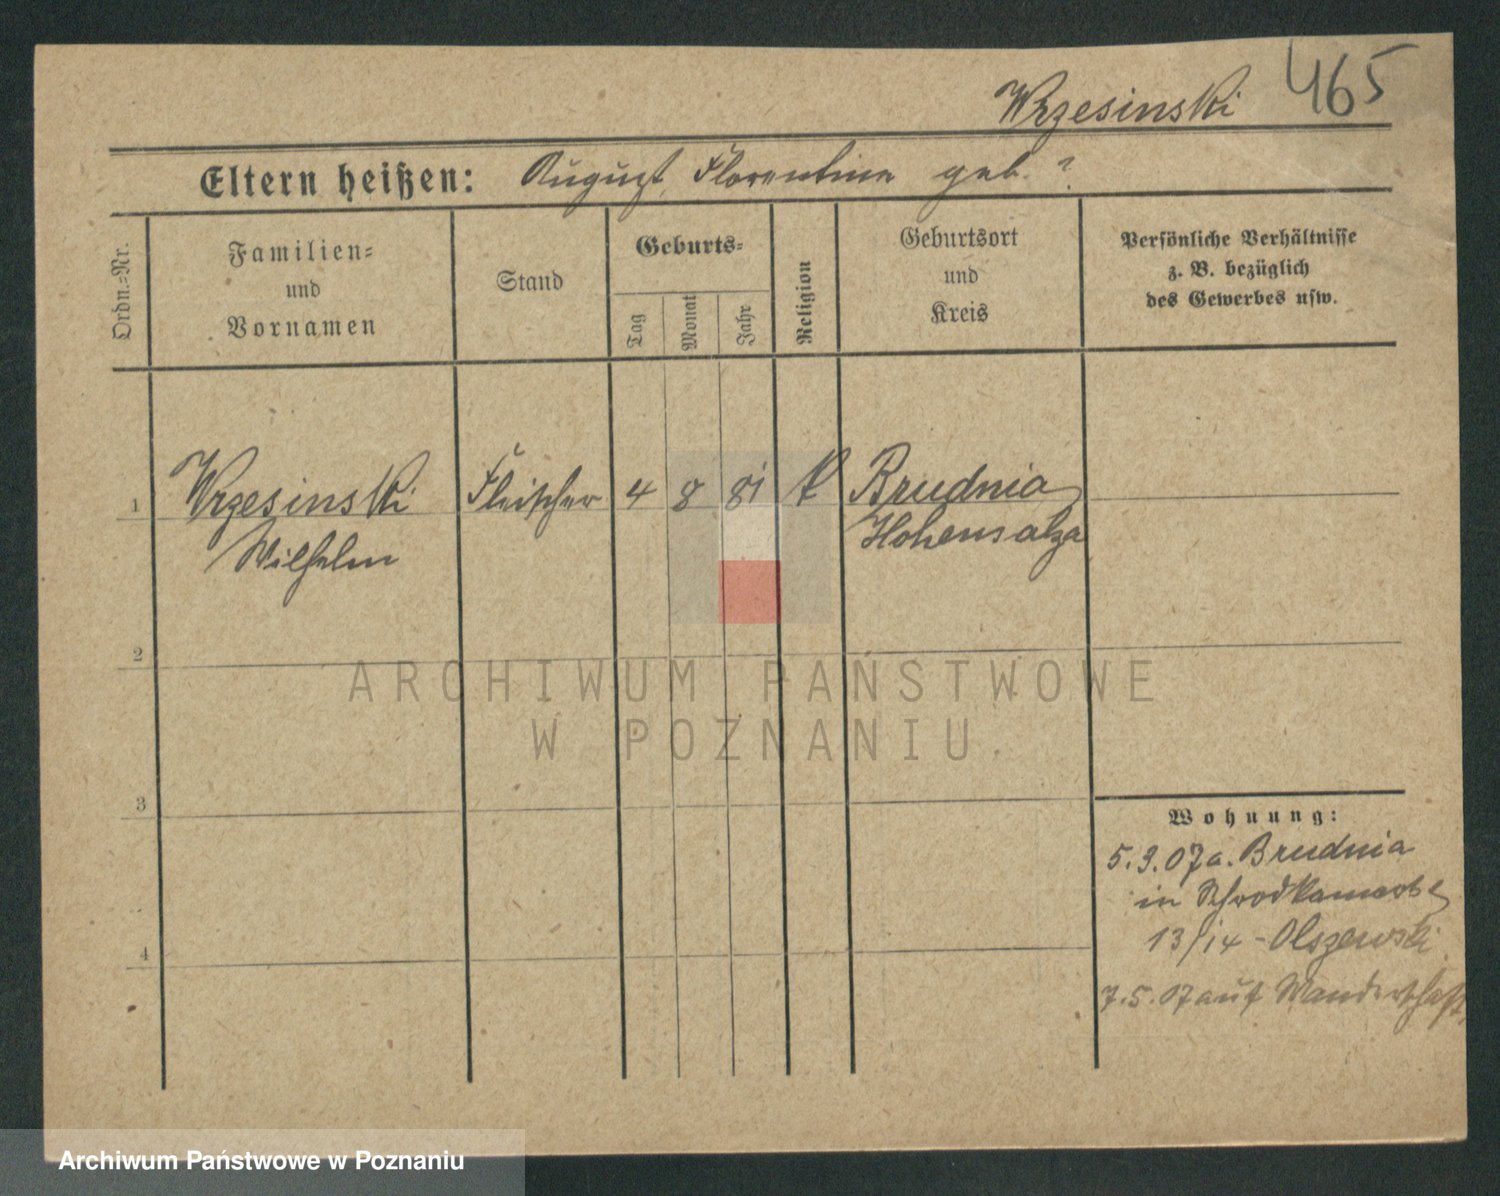 Wrzesinski 465
Eltern heißen: August, Florentine geb. ?
Ordn.=Nr.
Familien=
und
Vornamen
Stand
Geburts=
Tag
Monat
Jahr
Religion
Geburtsort
und
Kreis
Persönliche Verhältnisse
z. B. bezüglich
des Gewerbes usw.
1 Wrzesinski Fleischer 4 8 81 k Brudnia
Wilhelm Hohensalza
2
3
4
Wohnung:
5.3.07 a. Brudnia
in
13/14 - Olszewski
7.5.07 auf Wanderschaft
ARCHIWUM PAŃSTWOWE
W POZNANIU
Archiwum Państwowe w Poznaniu